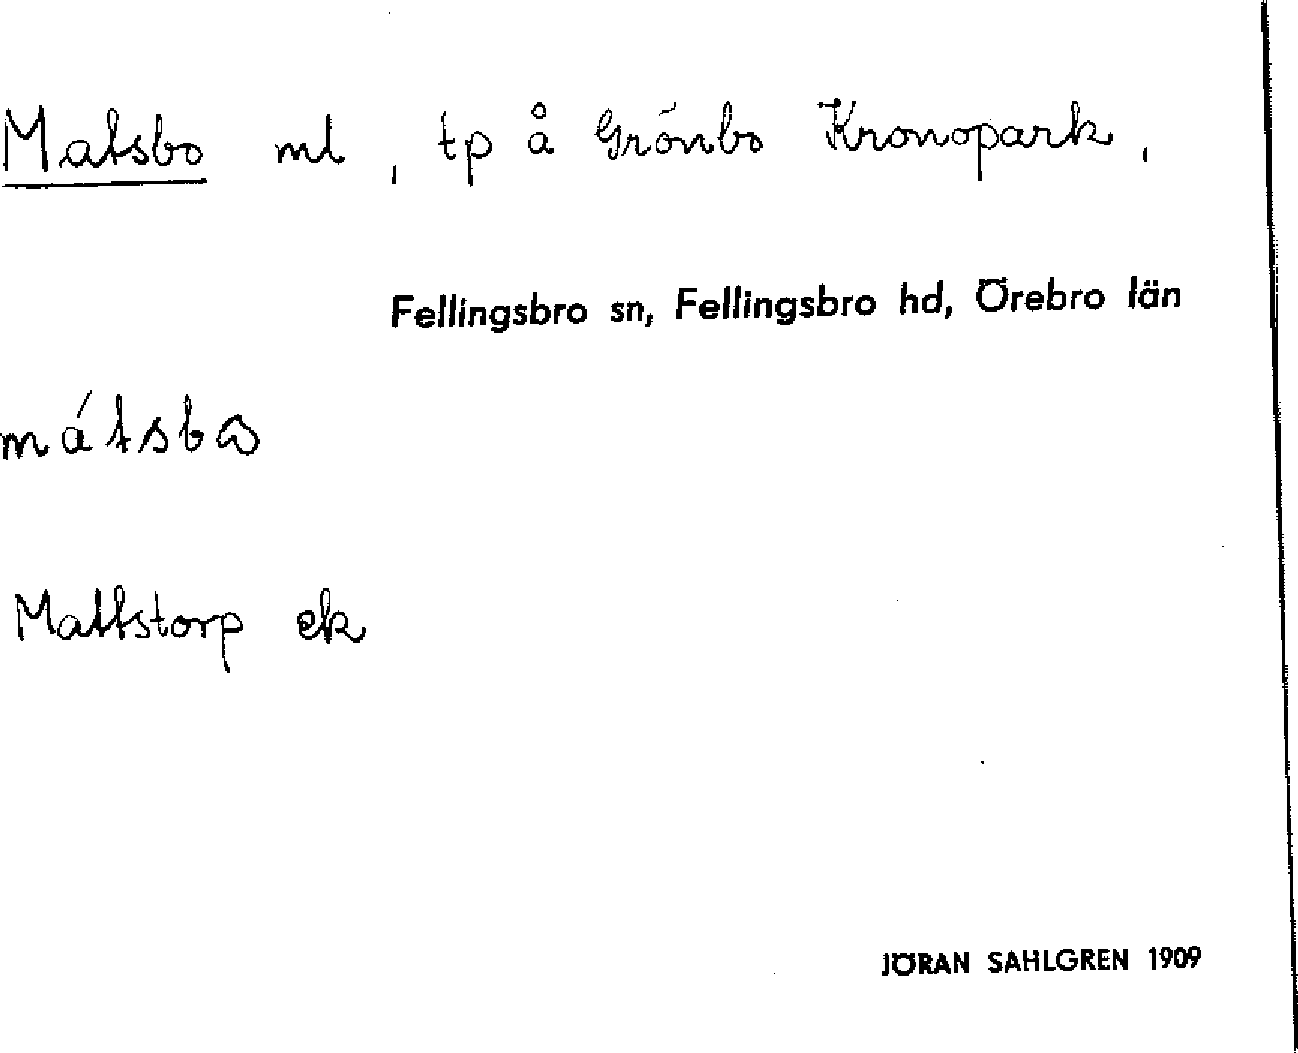 Matsbo ml, tp å Grönbo Kronopark,
Fellingsbro sn, Fellingsbro hd, Örebro län
mátsbω
Mattstorp ek
JÖRAN SAHLGREN 1909